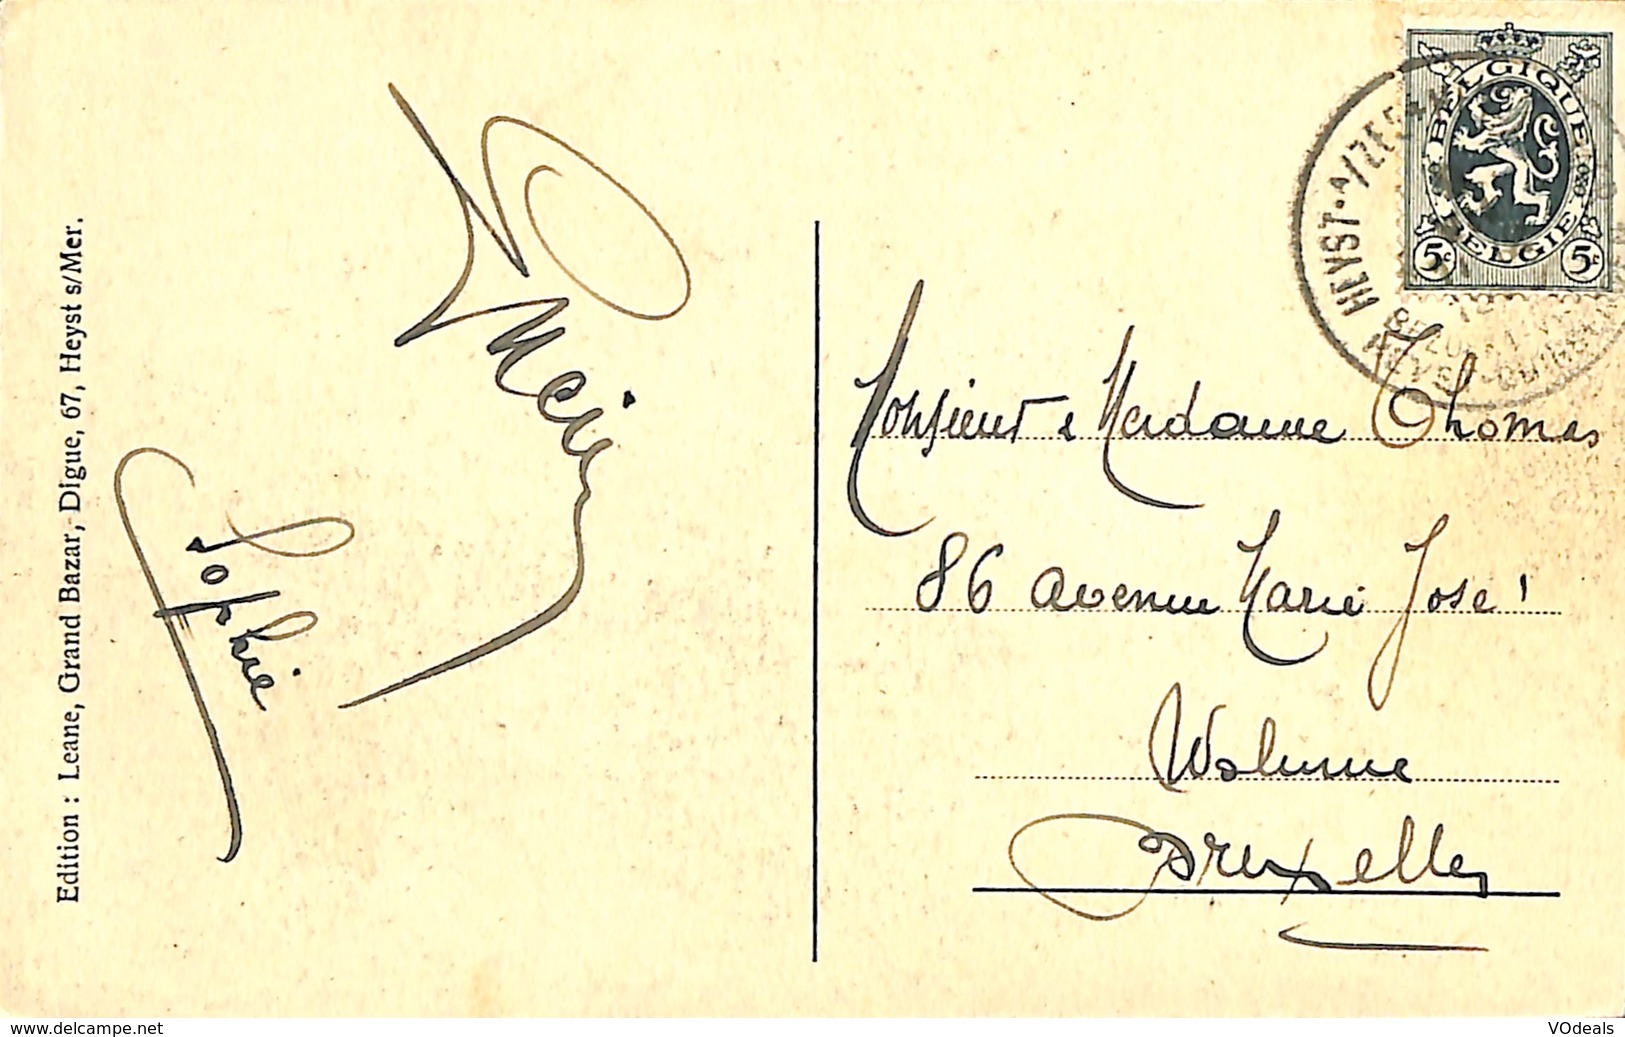 Edition : Leane, Grand Bazar, Digue, 67, Heyst s/Mer.
Sophie
BELGIQUE
BELGIE
5c 5c
HEYST
Monsieur & Madame Thomas
86 avenue Marie José
Woluwe
Bruxelles
www.delcampe.net
VOdeals